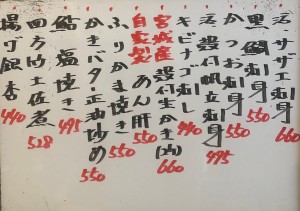 活サザエ刺身 550
黒鯛刺身 550
かつお刺身 550
活殻付帆立刺身 495
キビナゴ刺し 440
宮城産殻付生かき(2ヶ) 660
自家製あん肝 550
ふりかま焼き 550
かきバター正油炒め 550
鮎塩焼き 495
四方竹土佐煮 528
揚げ銀杏 440